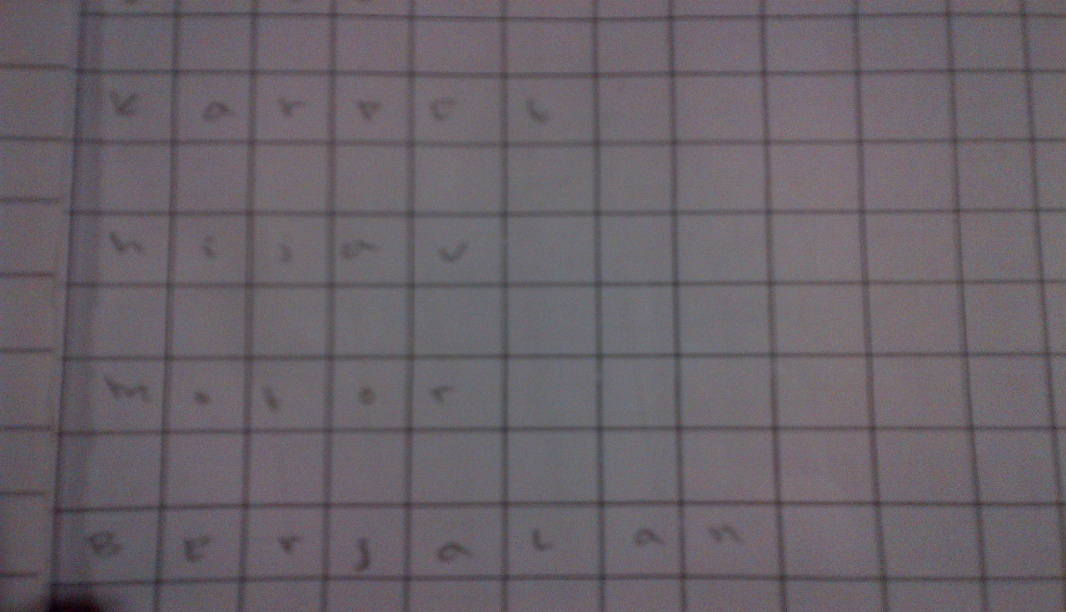 karpet
hijau
motor
Berjalan